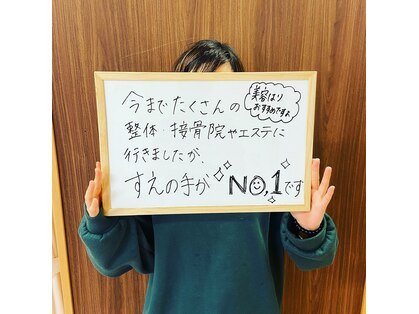 今までたくさんの
整体・接骨院やエステに
行きましたが、
すえの手が NO,1です
美容はり
おすすめですよ